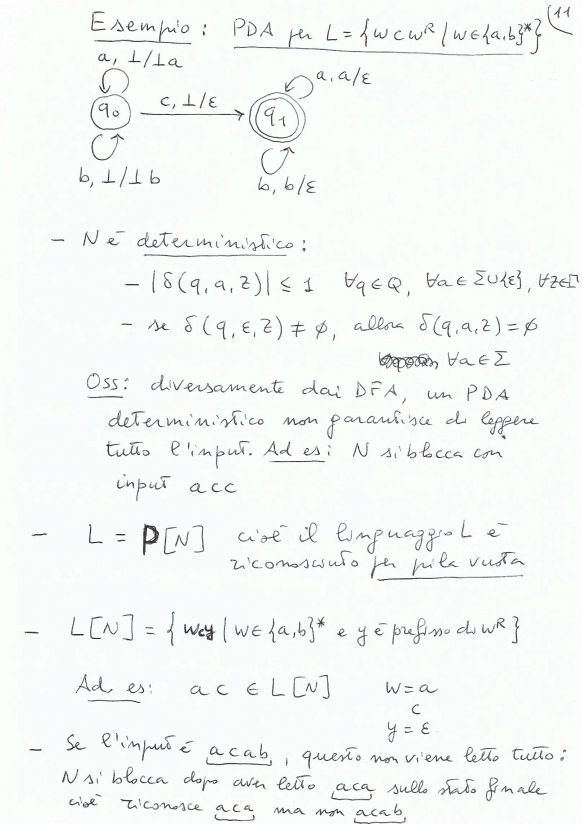 11
Esempio: PDA per L = {w c wᴿ | w ∈ {a,b}*}
a, ⊥/⊥a
a, a/ε
q₀ c, ⊥/ε q₁
b, ⊥/⊥b
b, b/ε
- N è deterministico:
- |δ(q,a,z)| ≤ 1 ∀q∈Q, ∀a∈Σ∪{ε}, ∀z∈Γ
- se δ(q,ε,z) ≠ ∅, allora δ(q,a,z) = ∅
∀a∈Σ
Oss: diversamente dai DFA, un PDA
deterministico non garantisce di leggere
tutto l'input. Ad es: N si blocca con
input acc
- L = P[N] cioè il linguaggio L è
riconosciuto per pila vuota
- L[N] = {wcy | w∈{a,b}* e y è prefisso di wᴿ}
Ad es: ac ∈ L[N] w=a
c
y=ε
- Se l'input è acab, questo non viene letto tutto:
N si blocca dopo aver letto aca sullo stato finale
cioè riconosce aca ma non acab